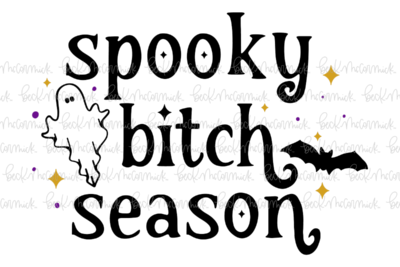 spooky
bitch
season